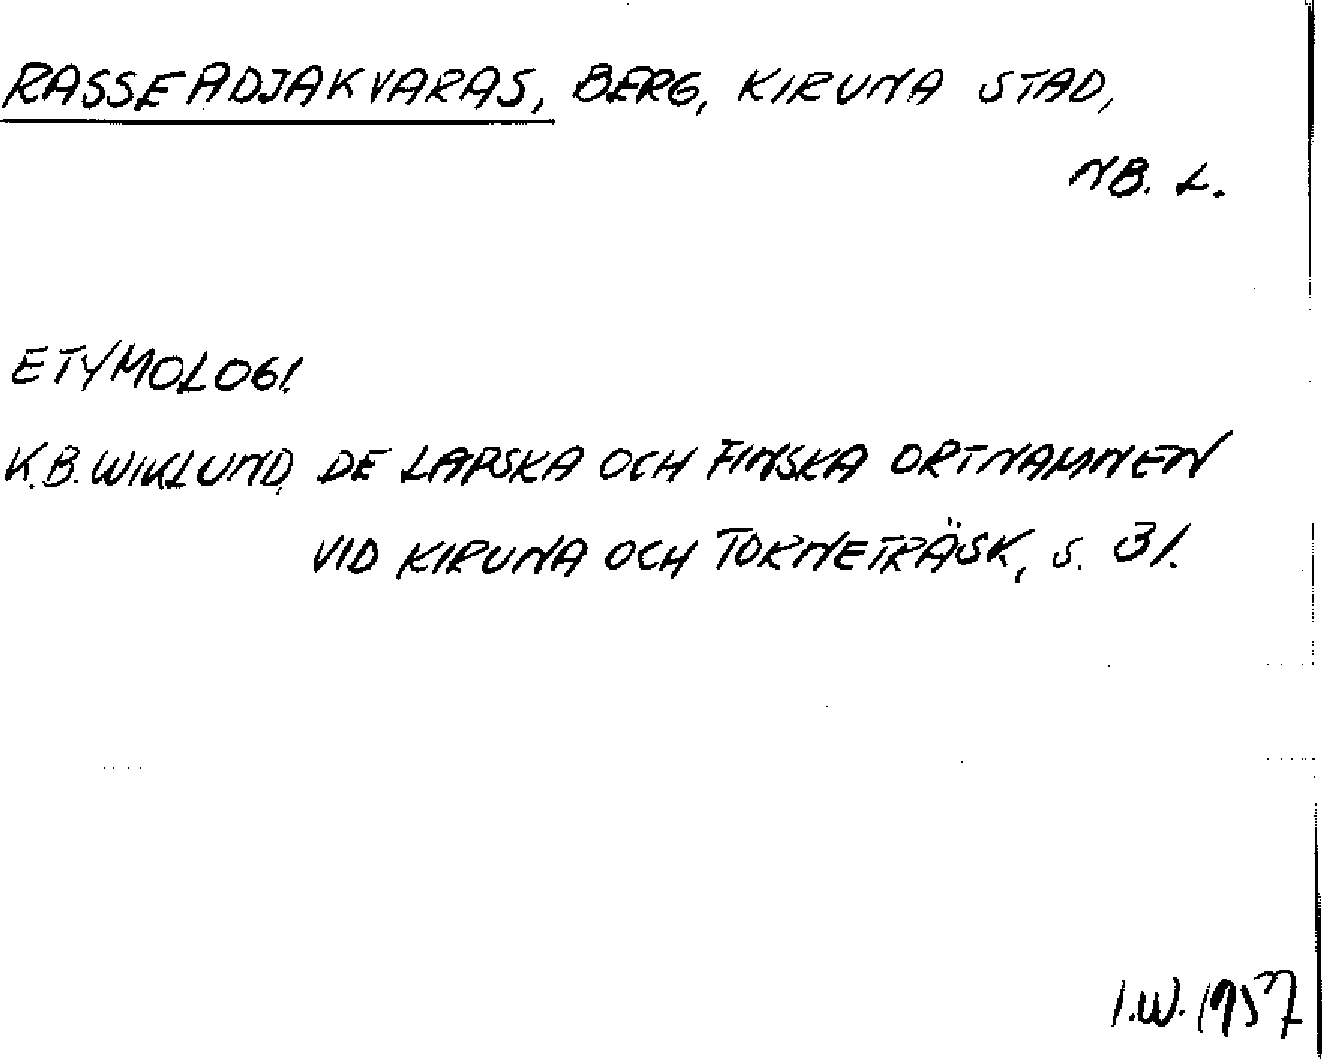 RASSEADJAKVARAS, BERG, KIRUNA STAD,
NB. L.
ETYMOLOGI.
K.B. WIKLUND, DE LAPSKA OCH FINSKA ORTNAMNEN
VID KIRUNA OCH TORNETRÄSK, S. 31.
I.W. 1957